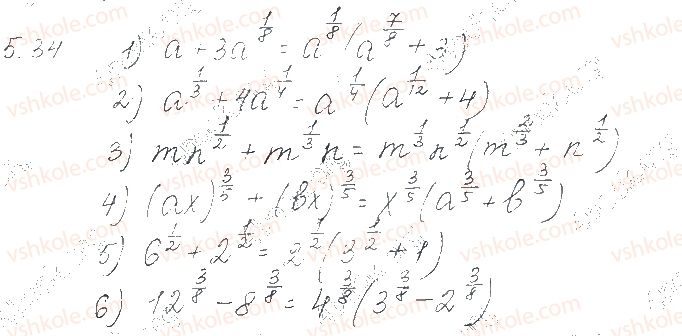 5.34 1) a + 3a^{1/8} = a^{1/8}(a^{7/8} + 3)
2) a^{1/3} + 4a^{1/4} = a^{1/4}(a^{1/12} + 4)
3) mn^{1/2} + m^{1/3}n = m^{1/3}n^{1/2}(m^{2/3} + n^{1/2})
4) (ax)^{3/5} + (bx)^{3/5} = x^{3/5}(a^{3/5} + b^{3/5})
5) 6^{1/2} + 2^{1/2} = 2^{1/2}(3^{1/2} + 1)
6) 12^{3/8} - 8^{3/8} = 4^{3/8}(3^{3/8} - 2^{3/8})
vshkole.com